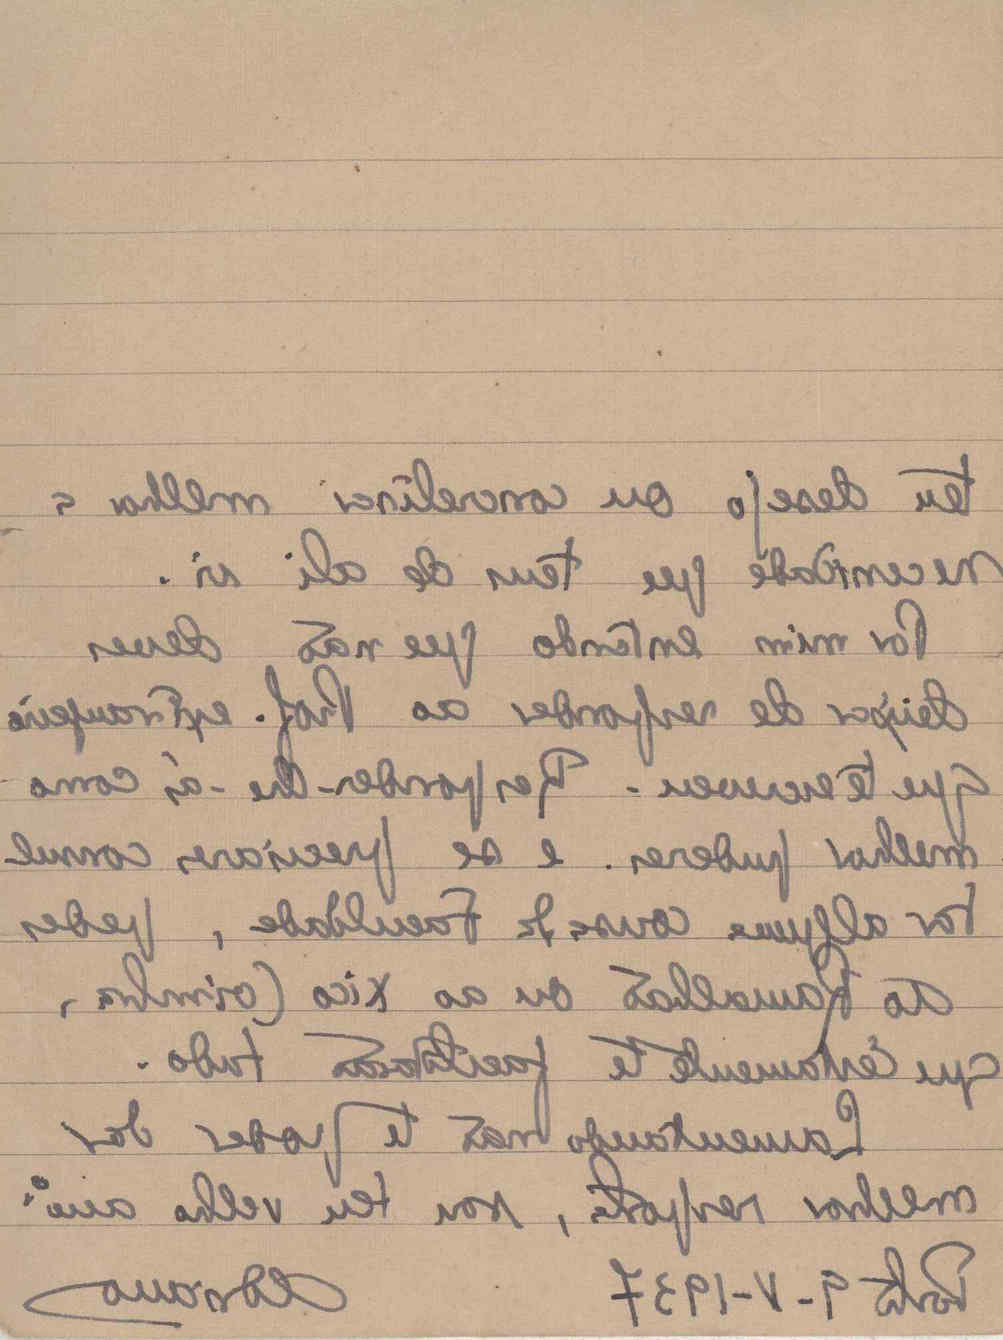 teu desejo ou concretisar melhor a
necessidade que tens de ali ir.
Por mim entendo que não deves
deixar de responder ao Prof. extrangeiro
que te escreveu - Responder-lhe-ás como
melhor puderes. e se precisares consul
tar alguma cousa de Faculdade, pedes
ao Ramalhão ou ao Xico Coimbra,
que certamente te facilitarão tudo.
Lamentando não te poder dar
melhor resposta, sou teu velho amº.
Porto 9-V-1937 Abrano